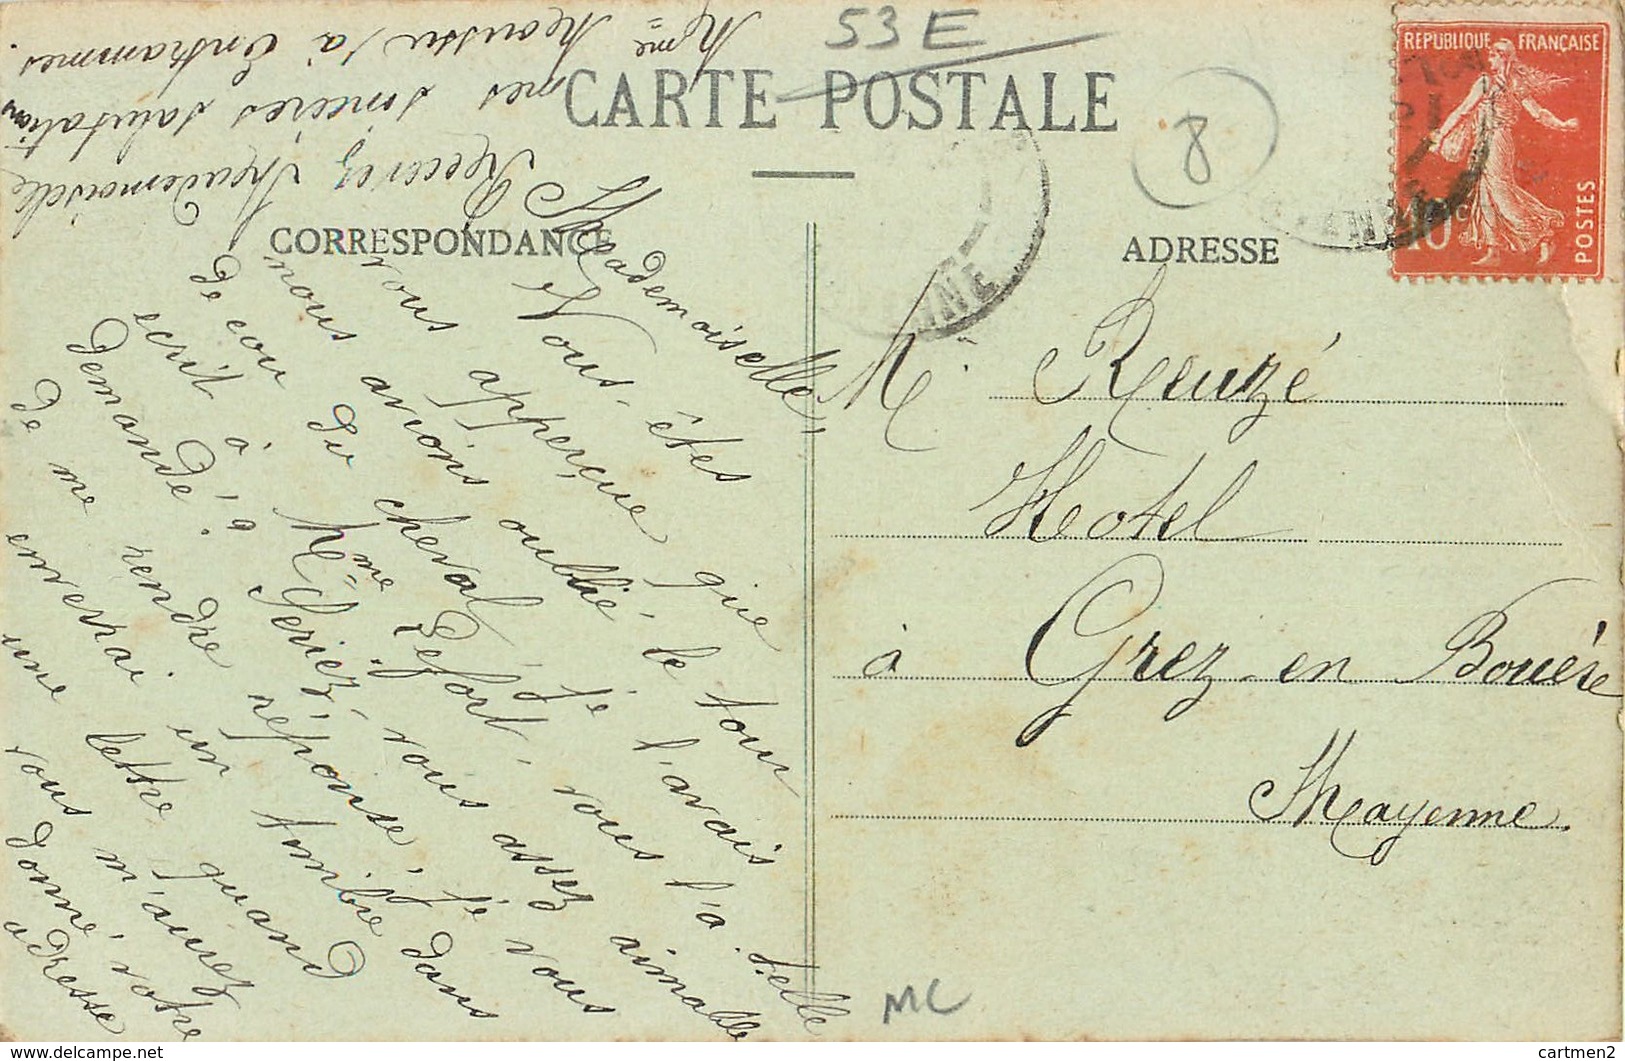 53 E
CARTE POSTALE
8
REPUBLIQUE FRANÇAISE
10c
POSTES
CORRESPONDANCE
ADRESSE
Mademoiselle,
Vous êtes
vous apperçue que
nous avions oublié, le tour
de cou du cheval, je l'avais
écrit à Mme Lefort, vous l'a-t-elle
demandé. à vous assez aimable
de me rendre réponse, je vous
enverrai un timbre dans
une lettre quand
vous m'aurez
donné, votre
adresse
Recevez Mademoiselle
mes sincères salutations
Mme à Entrammes.
M. Reuzé
Hotel
à Grez-en Bouère
Mayenne.
MC
delcampe.net
cartmen2